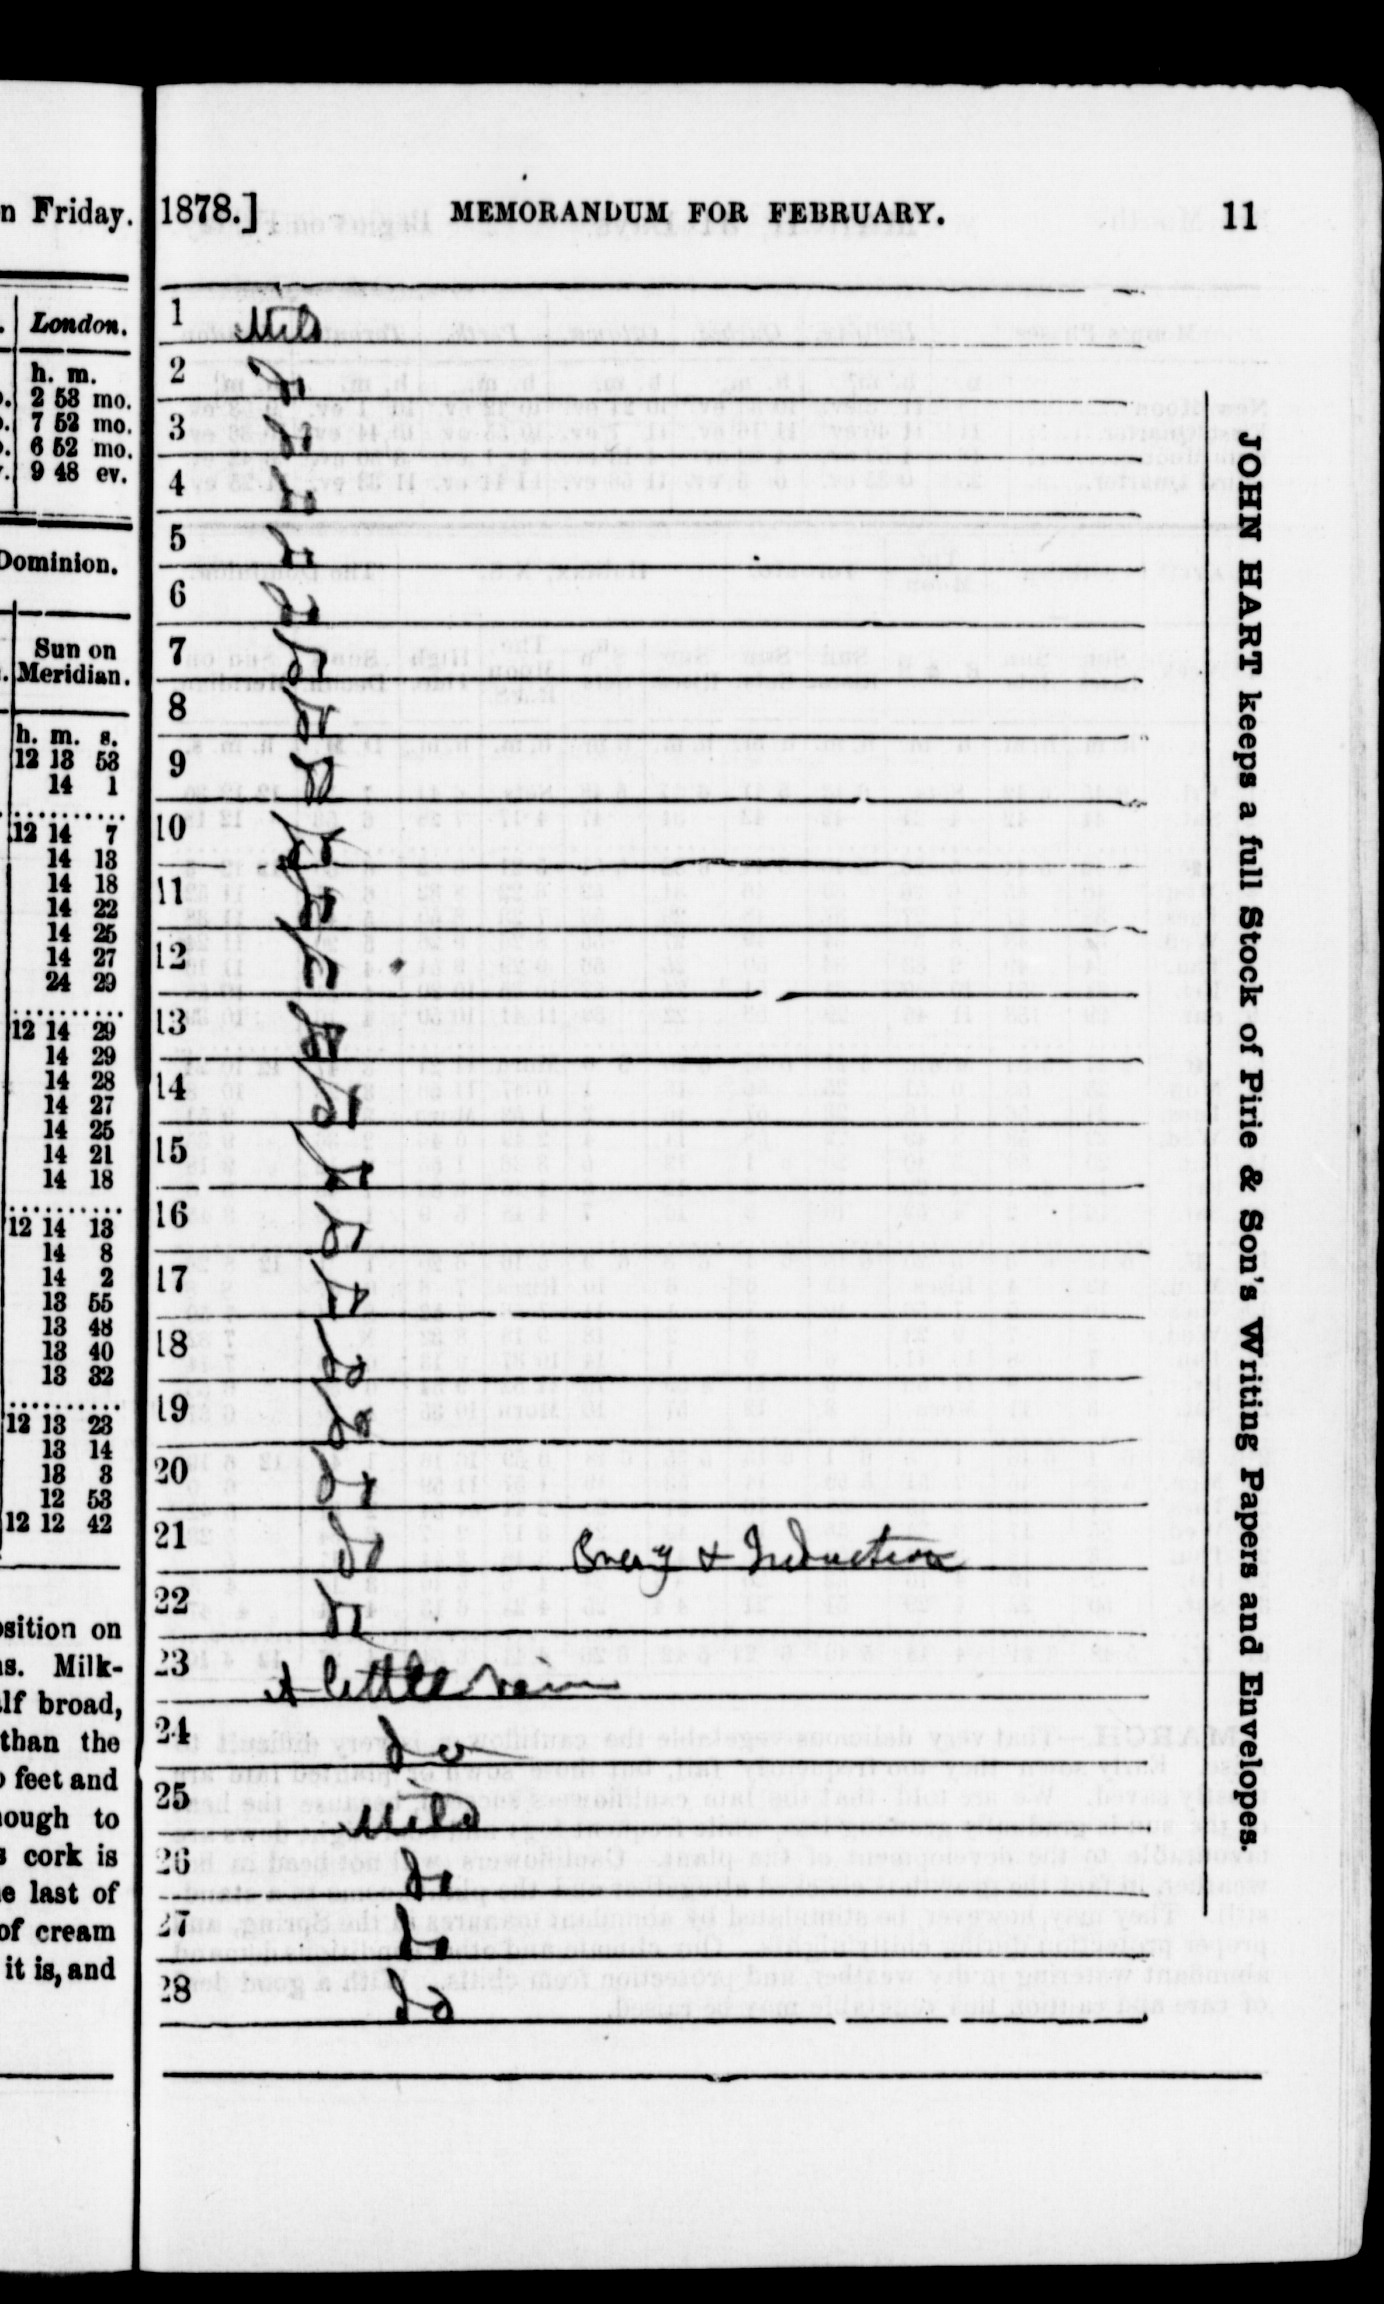 n Friday.
London.
h. m.
2 53 mo.
7 52 mo.
6 52 mo.
9 48 ev.
Dominion.
Sun on
Meridian.
h. m. s.
12 13 53
14 1
12 14 7
14 13
14 18
14 22
14 25
14 27
24 29
12 14 29
14 29
14 28
14 27
14 25
14 21
14 18
12 14 13
14 8
14 2
13 55
13 48
13 40
13 32
12 13 23
13 14
13 3
12 53
12 12 42
osition on
ns. Milk-
alf broad,
than the
o feet and
nough to
s cork is
e last of
of cream
it is, and
1878.] MEMORANDUM FOR FEBRUARY. 11
1 Mild
2 do
3 do
4 do
5 do
6 do
7 do
8 do
9 do
10 do
11 do
12 do
13 do
14 do
15 do
16 do
17 do
18 do
19 do
20 do
21 do & Induction
22 do
23 A little rain
24 do
25 Mild
26 do
27 do
28 do
JOHN HART keeps a full Stock of Pirie & Son's Writing Papers and Envelopes.